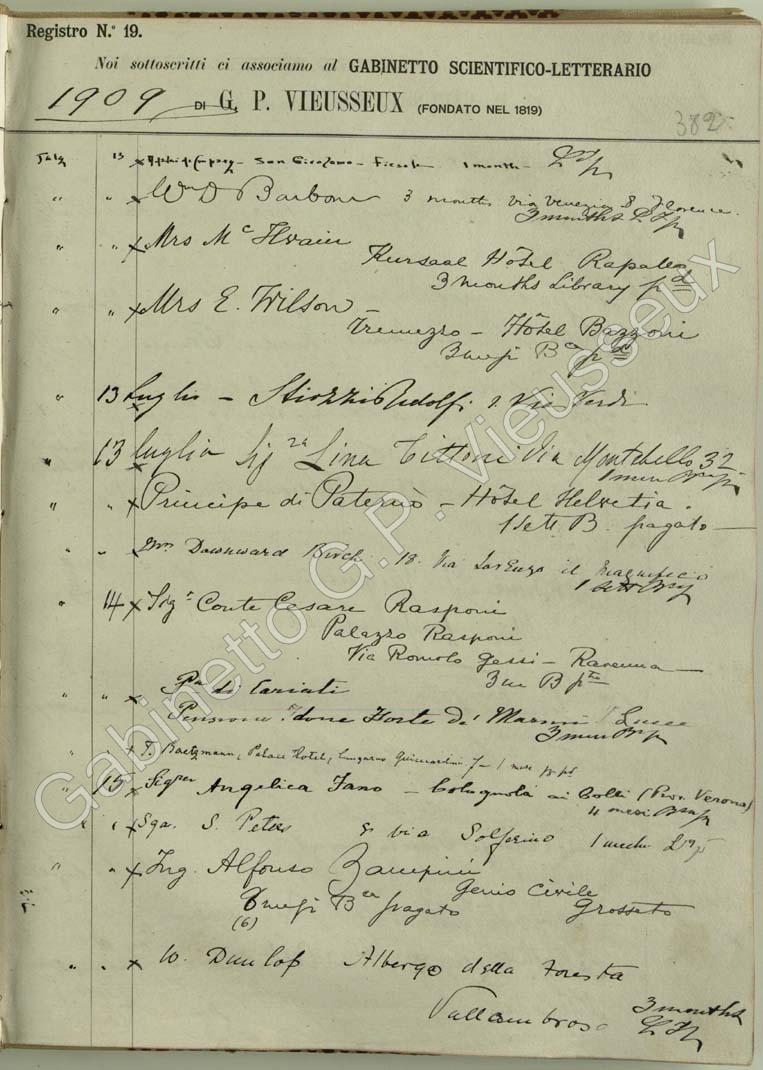 Registro N.° 19.
Noi sottoscritti ci associamo al GABINETTO SCIENTIFICO-LETTERARIO
1909 DI G. P. VIEUSSEUX (FONDATO NEL 1819)
382
July 13 x San Girolamo - Fiesole 1 month -
" " x Wm D Barbour 3 months via Venezia 8 Florence.
3 months
" " x Mrs Mc
Kursaal Hôtel Rapallo
3 months Library pd
" " x Mrs E. Wilson -
Tremezzo - Hôtel Bazzoni
3 mesi Bca pd
" 13 Luglio - Stiozzi Ridolfi Via Verdi
" 13 x Luglio Sigra Lina Tittoni Via Montebello 32
1 mese
" " x Principe di Paternò - Hôtel Helvetia.
1 Sett B. pagato
" " x Downward Birch 18. Via Lorenzo il Magnifico
1 Sett
" 14 x Sigr Conte Cesare Rasponi
Palazzo Rasponi
Via Romolo Gessi - Ravenna
3 m B pto
" " x di Cariati
Pensione Forte dei Marmi Lucca
3 mesi
" " x Palace Hotel, Lungarno Guicciardini 7 - 1 mese
" 15 x Angelica Fano - Colognola ai Colli (Prov. Verona)
4 mesi
" " x Sga. S. Peters 5 via Solferino 1 week
" " x Ing. Alfonso Zampini
Genio Civile
6 mesi Bca pagato Grosseto
(6)
" " x W. Dunlop Albergo della Foresta
Vallombrosa 3 months
Gabinetto G.P. Vieusseux